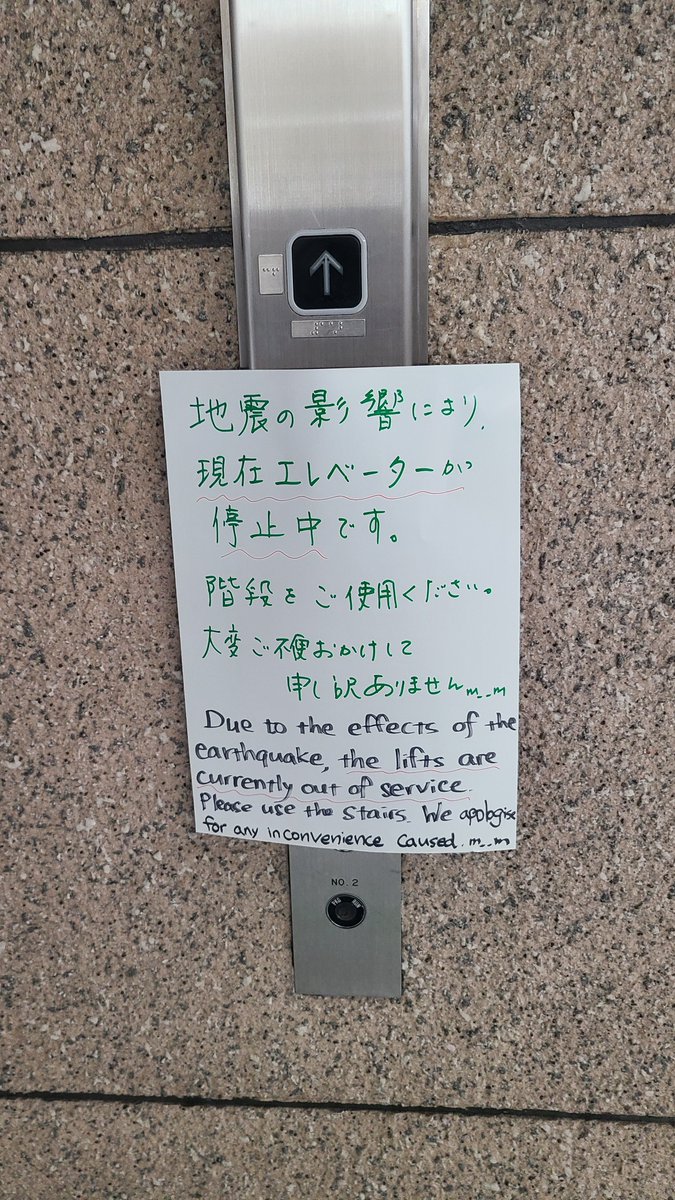 地震の影響により、
現在エレベーターが
停止中です。
階段をご使用ください。
大変ご不便おかけして
申し訳ありませんm__m
Due to the effects of the
earthquake, the lifts are
currently out of service.
Please use the stairs. We apologise
for any inconvenience caused. m__m
NO. 2